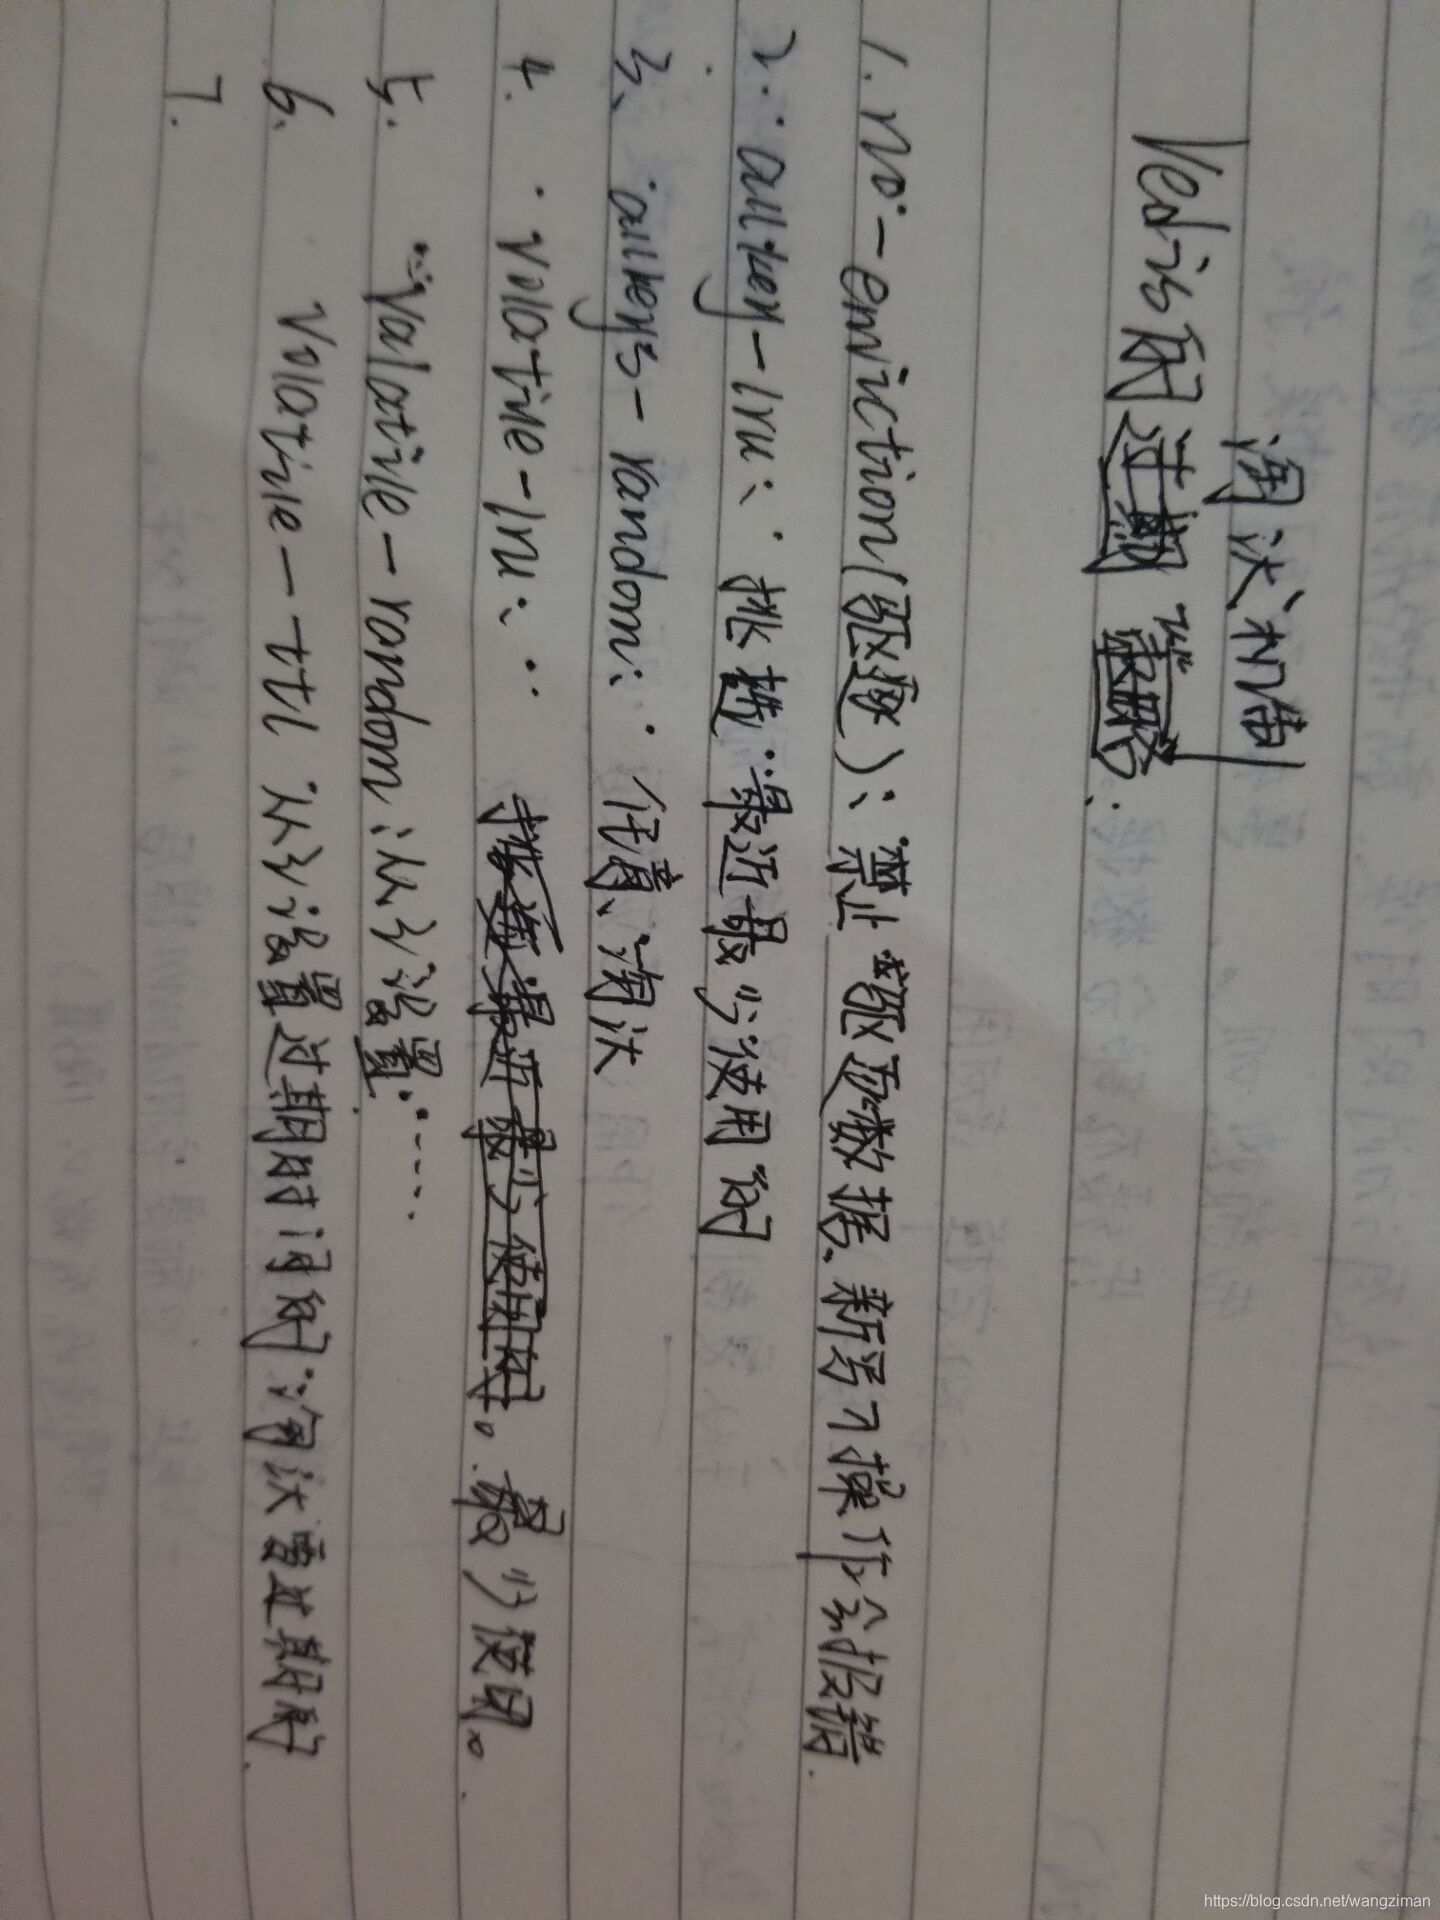 淘汰机制
Redis的过期策略:
1. no-eniction(驱逐): 禁止驱逐数据、新写入操作会报错.
2. allkey-lru: 挑选最近最少使用的
3、allkeys-random: 任意、淘汰
4. volatile-lru: 最少使用。
5. valatile-random: 从已设置....
6. volatile-ttl 从已设置过期时间的:淘汰要过期的
7.
https://blog.csdn.net/wangziman